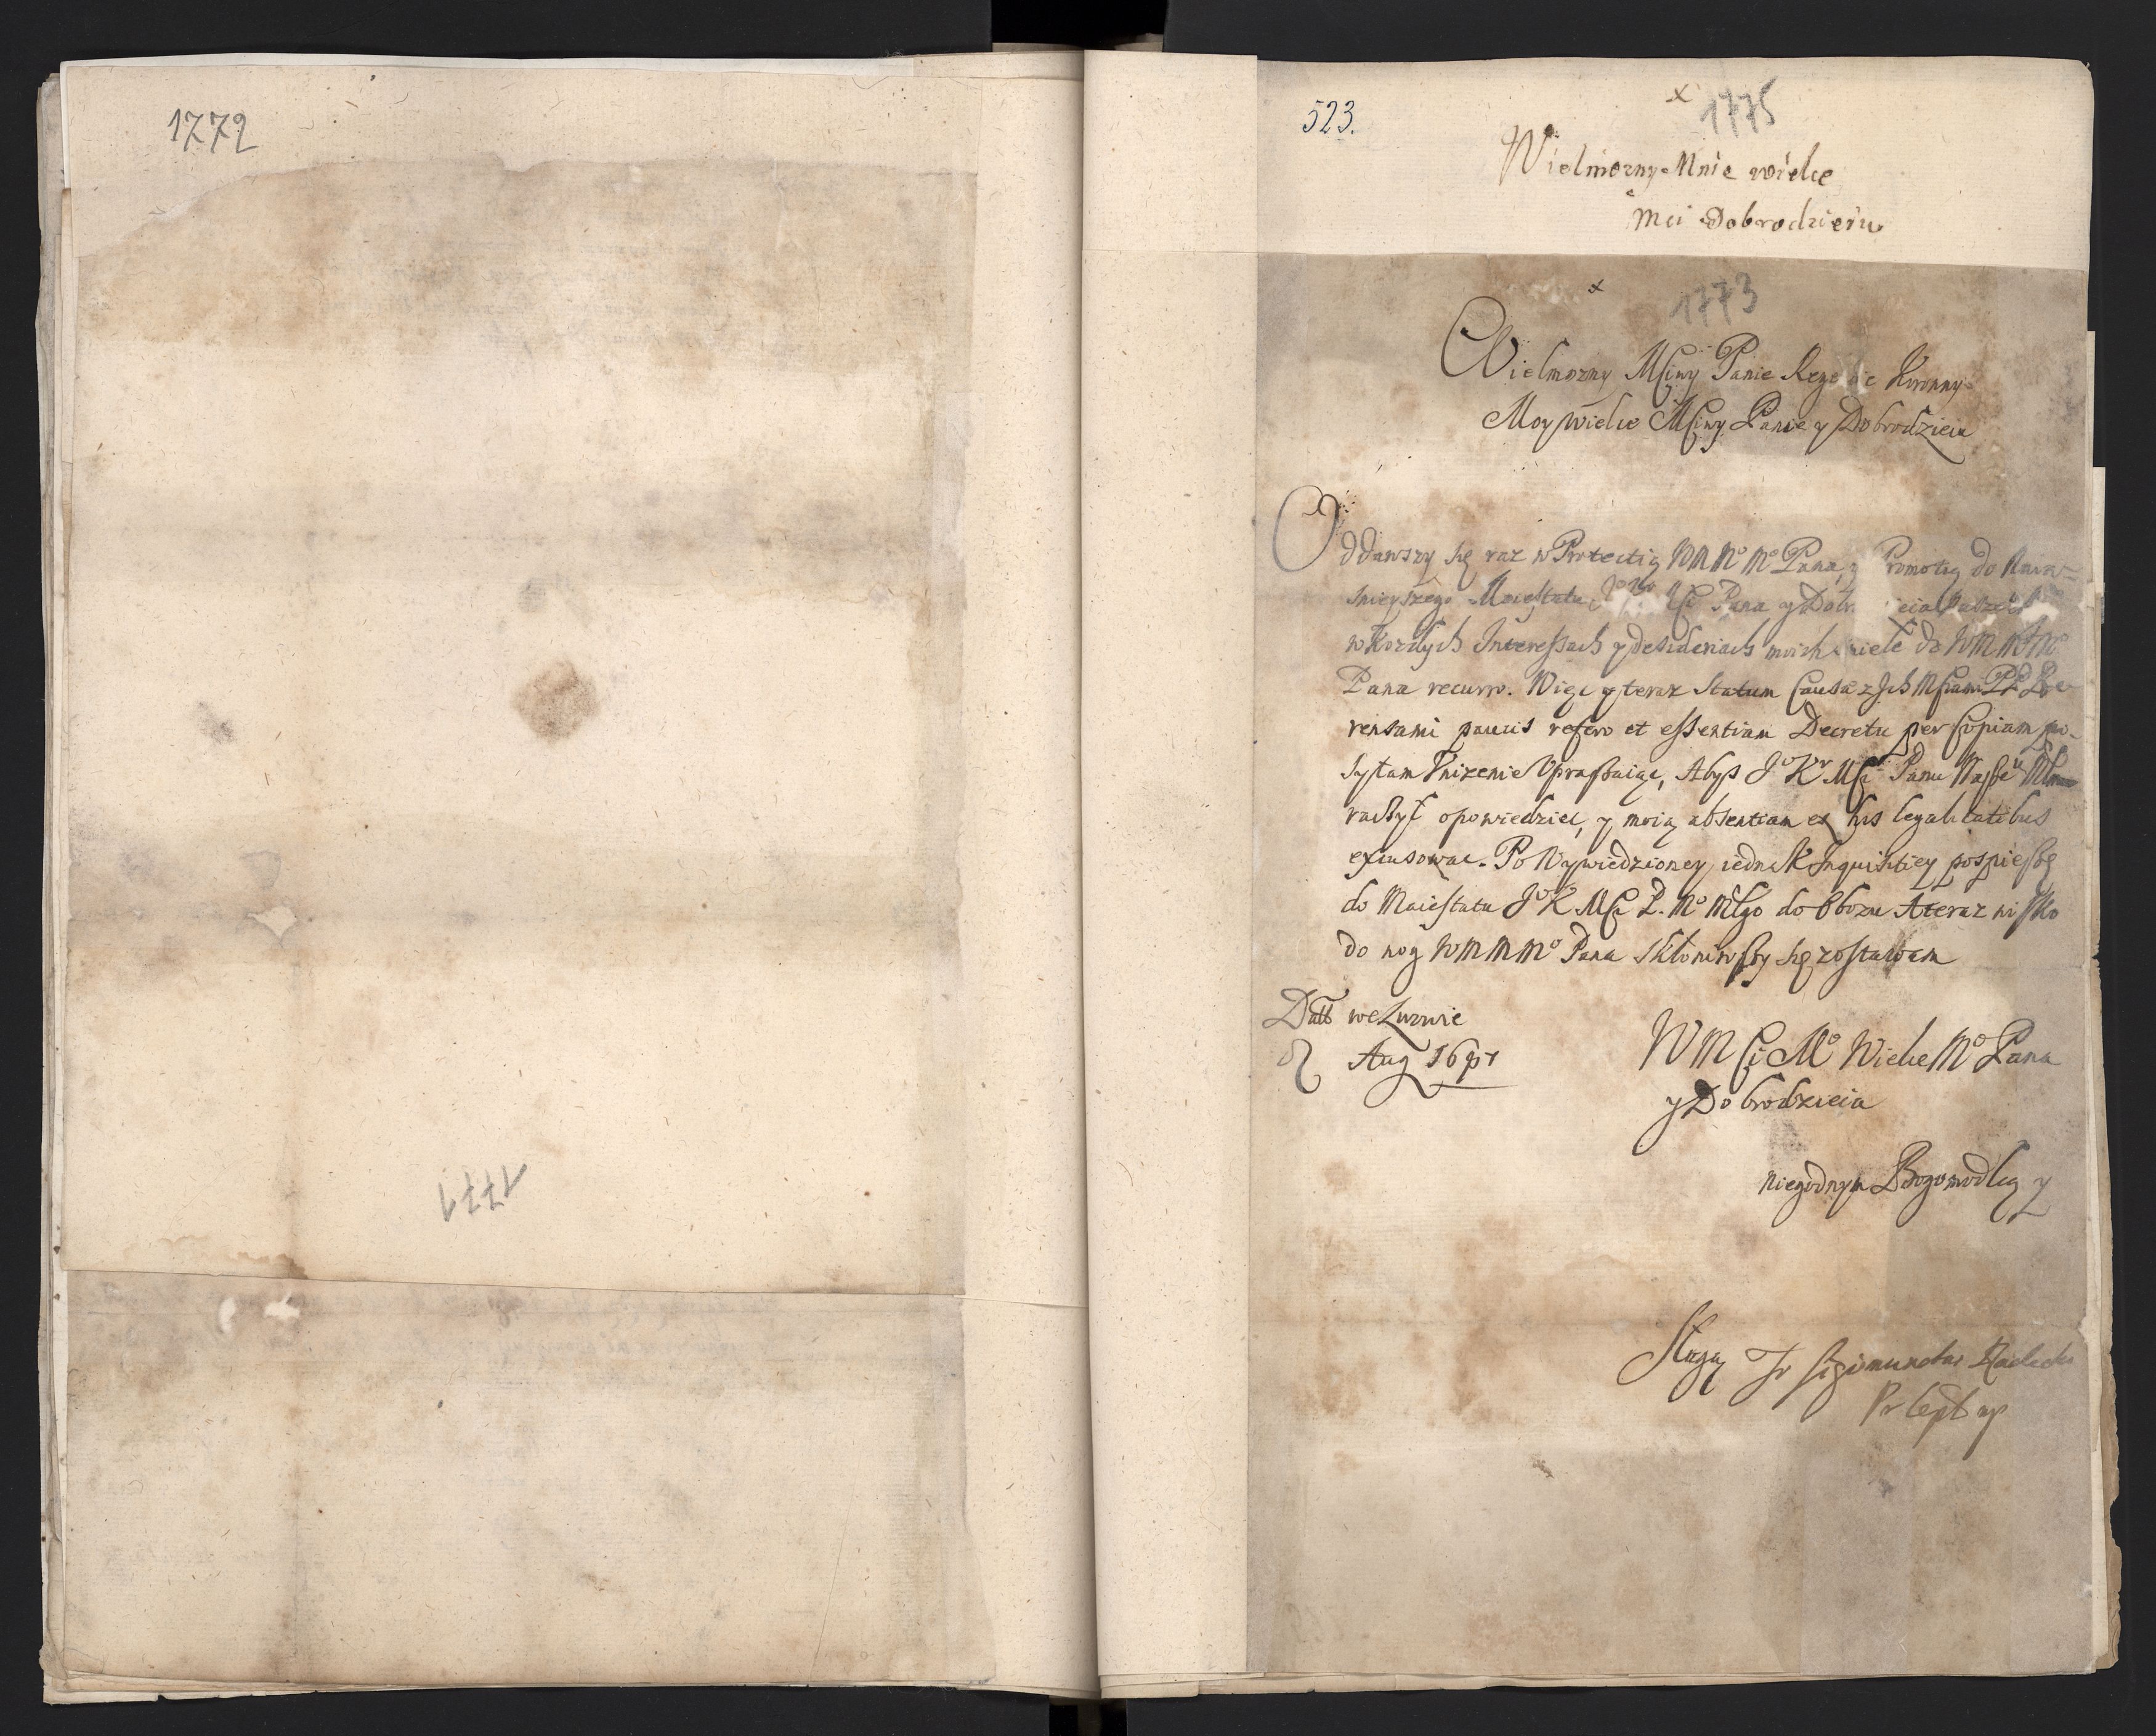 1772
1771
523.
x 1775
Wielmozny Mnie wielce
Mci Dobrodzieiu
x 1773
Wielmozny MSciwy Panie Rege Koronny
Moy Wielce MSciwy Panie y Dobrodzieiu
Oddawszy się raz w Protectią WM Mo Mo Pana, y Promotią do Naia=
snieyszego Maiestatu Pana y
w Kozdych Interessach y desideriach moich do WM
Pana recurro. Więc y teraz Statum Causæ z Jch MSciami PP
rensami paucis refero et essentiam Decretu per Copiam po-
sytam Vnizenie Vpraszaiąc, Abys Jo Kr MSci Panu Naszeu
raczył opowiedziec, y moią absentiam ex his legalitatibus
excusowac. Po Wywiedzioney iednak Inquisitiey pospieszę
do Maiestatu Jo K MSci P. Mo Mgo do Obozu A teraz nisko
do nog WMMMo Pana skłoniwszy się zostawam
Datt we Lwowie
Aug 1691
WMSci Mo Wielce Mo Pana
y Dobrodzieia
niegodnym Bogomodlcą y
Sługą Fr Sigismundus